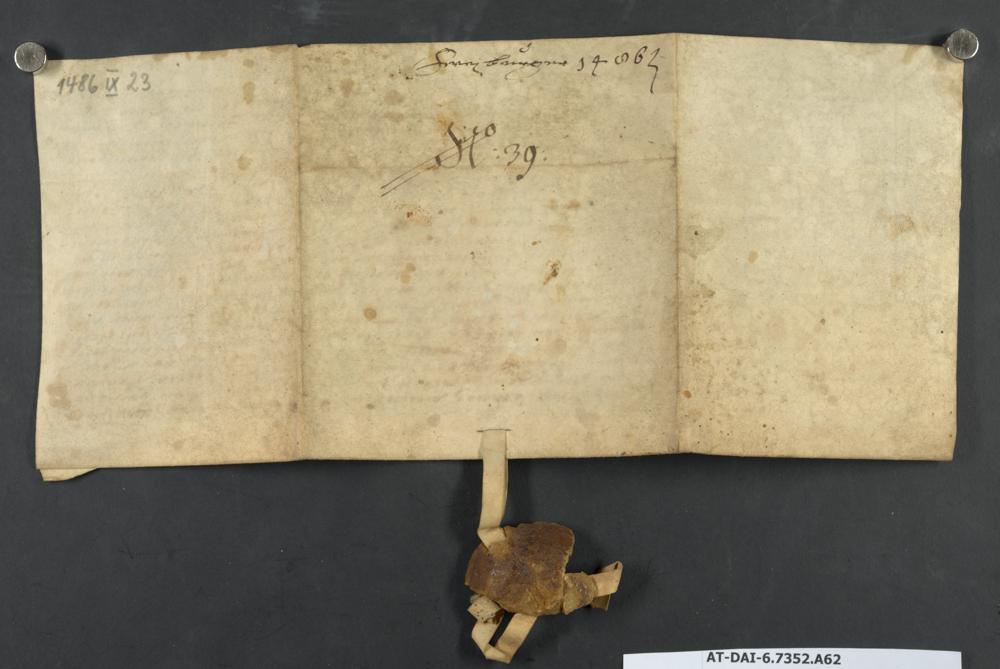 1486 IX 23
1486
No: 39:
AT-DAI-6.7352.A62